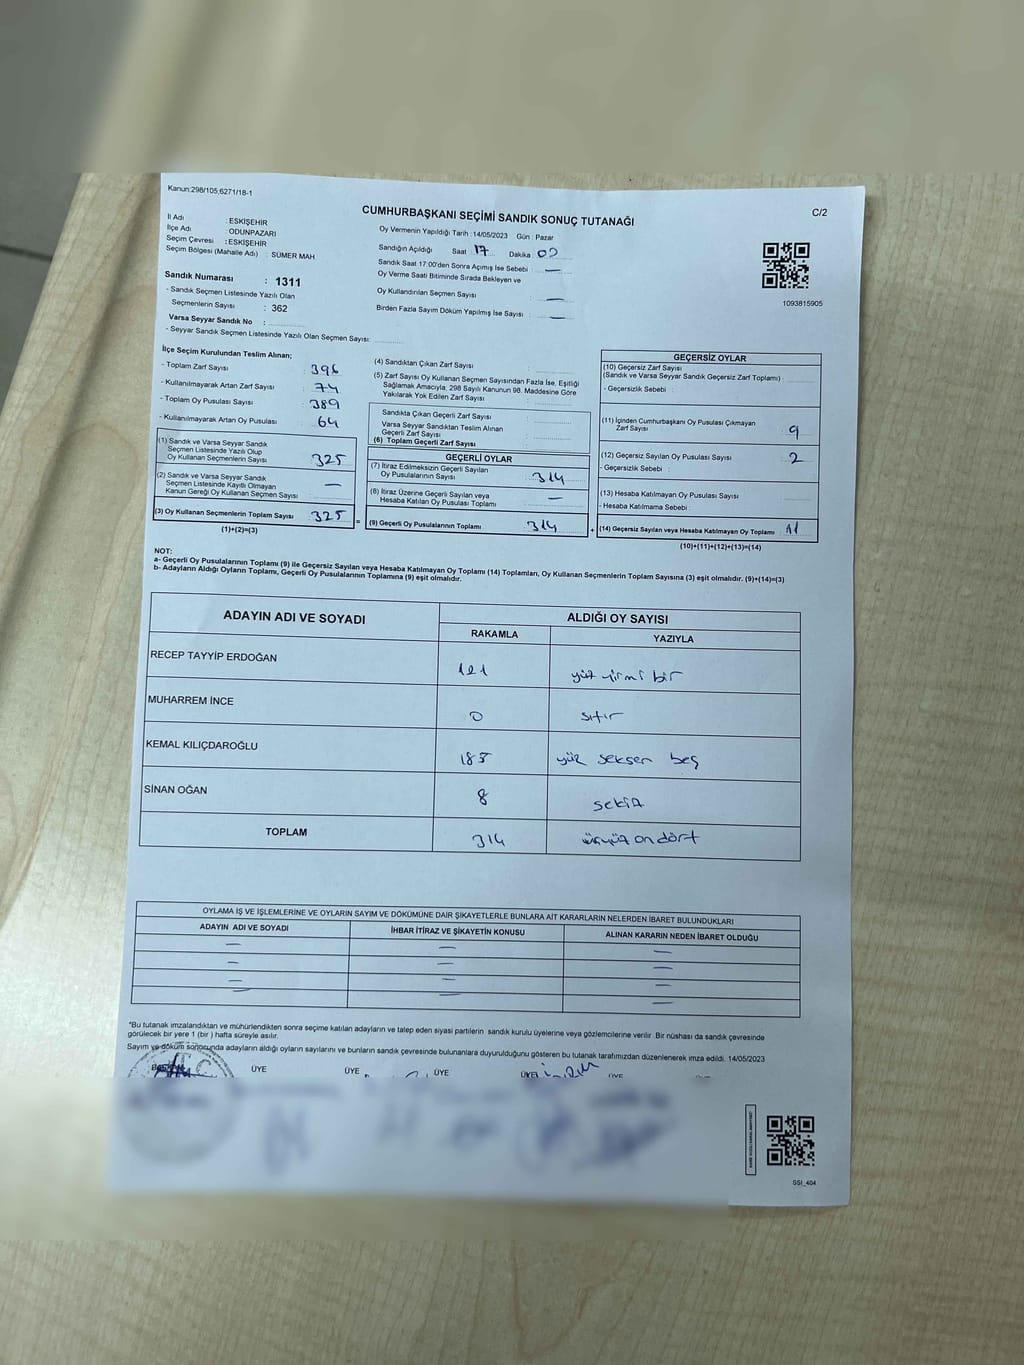 Kanun:298/105,6271/18-1
C/2
CUMHURBAŞKANI SEÇİMİ SANDIK SONUÇ TUTANAĞI
İl Adı : ESKİŞEHİR
İlçe Adı : ODUNPAZARI
Seçim Çevresi : ESKİŞEHİR
Seçim Bölgesi (Mahalle Adı) : SÜMER MAH
Oy Vermenin Yapıldığı Tarih :14/05/2023 Gün : Pazar
Sandığın Açıldığı Saat 17 Dakika : 00
Sandık Saat 17:00'den Sonra Açımış İse Sebebi : —
Oy Verme Saati Bitiminde Sırada Bekleyen ve
Oy Kullandırılan Seçmen Sayısı : —
Birden Fazla Sayım Döküm Yapılmış İse Sayısı : —
1093815905
Sandık Numarası : 1311
- Sandık Seçmen Listesinde Yazılı Olan
Seçmenlerin Sayısı : 362
Varsa Seyyar Sandık No :
- Seyyar Sandık Seçmen Listesinde Yazılı Olan Seçmen Sayısı:
İlçe Seçim Kurulundan Teslim Alınan;
- Toplam Zarf Sayısı : 396
- Kullanılmayarak Artan Zarf Sayısı : 74
- Toplam Oy Pusulası Sayısı : 389
- Kullanılmayarak Artan Oy Pusulası : 64
(1) Sandık ve Varsa Seyyar Sandık
Seçmen Listesinde Yazılı Olup
Oy Kullanan Seçmenlerin Sayısı : 325
(2) Sandık ve Varsa Seyyar Sandık
Seçmen Listesinde Kayıtlı Olmayan
Kanun Gereği Oy Kullanan Seçmen Sayısı : —
(3) Oy Kullanan Seçmenlerin Toplam Sayısı : 325
(1)+(2)=(3)
(4) Sandıktan Çıkan Zarf Sayısı :
(5) Zarf Sayısı Oy Kullanan Seçmen Sayısından Fazla İse, Eşitliği
Sağlamak Amacıyla, 298 Sayılı Kanunun 98. Maddesine Göre
Yakılarak Yok Edilen Zarf Sayısı :
Sandıkta Çıkan Geçerli Zarf Sayısı :
Varsa Seyyar Sandıktan Teslim Alınan
Geçerli Zarf Sayısı :
(6) Toplam Geçerli Zarf Sayısı :
GEÇERLİ OYLAR
(7) İtiraz Edilmeksizin Geçerli Sayılan
Oy Pusulalarının Sayısı : 314
(8) İtiraz Üzerine Geçerli Sayılan veya
Hesaba Katılan Oy Pusulası Toplamı : —
= (9) Geçerli Oy Pusulalarının Toplamı : 314 +
GEÇERSİZ OYLAR
(10) Geçersiz Zarf Sayısı
(Sandık ve Varsa Seyyar Sandık Geçersiz Zarf Toplamı) :
- Geçersizlik Sebebi :
(11) İçinden Cumhurbaşkanı Oy Pusulası Çıkmayan
Zarf Sayısı : 9
(12) Geçersiz Sayılan Oy Pusulası Sayısı : 2
- Geçersizlik Sebebi :
(13) Hesaba Katılmayan Oy Pusulası Sayısı :
- Hesaba Katılmama Sebebi :
(14) Geçersiz Sayılan veya Hesaba Katılmayan Oy Toplamı : 11
(10)+(11)+(12)+(13)=(14)
NOT:
a- Geçerli Oy Pusulalarının Toplamı (9) ile Geçersiz Sayılan veya Hesaba Katılmayan Oy Toplamı (14) Toplamları, Oy Kullanan Seçmenlerin Toplam Sayısına (3) eşit olmalıdır. (9)+(14)=(3)
b- Adayların Aldığı Oyların Toplamı, Geçerli Oy Pusulalarının Toplamına (9) eşit olmalıdır.
ADAYIN ADI VE SOYADI
ALDIĞI OY SAYISI
RAKAMLA YAZIYLA
RECEP TAYYİP ERDOĞAN 121 yüz yirmi bir
MUHARREM İNCE 0 sıfır
KEMAL KILIÇDAROĞLU 185 yüz seksen beş
SİNAN OĞAN 8 sekiz
TOPLAM 314 üçyüz on dört
OYLAMA İŞ VE İŞLEMLERİNE VE OYLARIN SAYIM VE DÖKÜMÜNE DAİR ŞİKAYETLERLE BUNLARA AİT KARARLARIN NELERDEN İBARET BULUNDUKLARI
ADAYIN ADI VE SOYADI İHBAR İTİRAZ VE ŞİKAYETİN KONUSU ALINAN KARARIN NEDEN İBARET OLDUĞU
— — —
— — —
— — —
— — —
"Bu tutanak imzalandıktan ve mühürlendikten sonra seçime katılan adayların ve talep eden siyasi partilerin sandık kurulu üyelerine veya gözlemcilerine verilir. Bir nüshası da sandık çevresinde
görülecek bir yere 1 (bir ) hafta süreyle asılır.
Sayım ve döküm sonucunda adayların aldığı oyların sayılarını ve bunların sandık çevresinde bulunanlara duyurulduğunu gösteren bu tutanak tarafımızdan düzenlenerek imza edildi. 14/05/2023
ÜYE ÜYE ÜYE ÜYE ÜYE
SSI_404